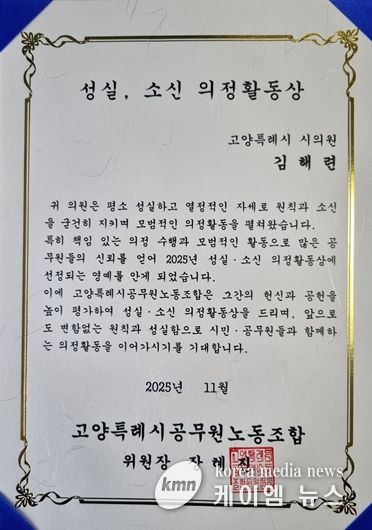 성실, 소신 의정활동상
고양특례시 시의원
김 해 련
귀 의원은 평소 성실하고 열정적인 자세로 원칙과 소신
을 굳건히 지키며 모범적인 의정활동을 펼쳐왔습니다.
특히 책임 있는 의정 수행과 모범적인 활동으로 많은 공
무원들의 신뢰를 얻어 2025년 성실·소신 의정활동상에
선정되는 영예를 안게 되었습니다.
이에 고양특례시공무원노동조합은 그간의 헌신과 공헌을
높이 평가하여 성실·소신 의정활동상을 드리며, 앞으로
도 변함없는 원칙과 성실함으로 시민·공무원들과 함께하
는 의정활동을 이어가시기를 기대합니다.
2025년 11월
고양특례시공무원노동조합
위원장 장 혜 진
kmn korea media news
케이엠 뉴스